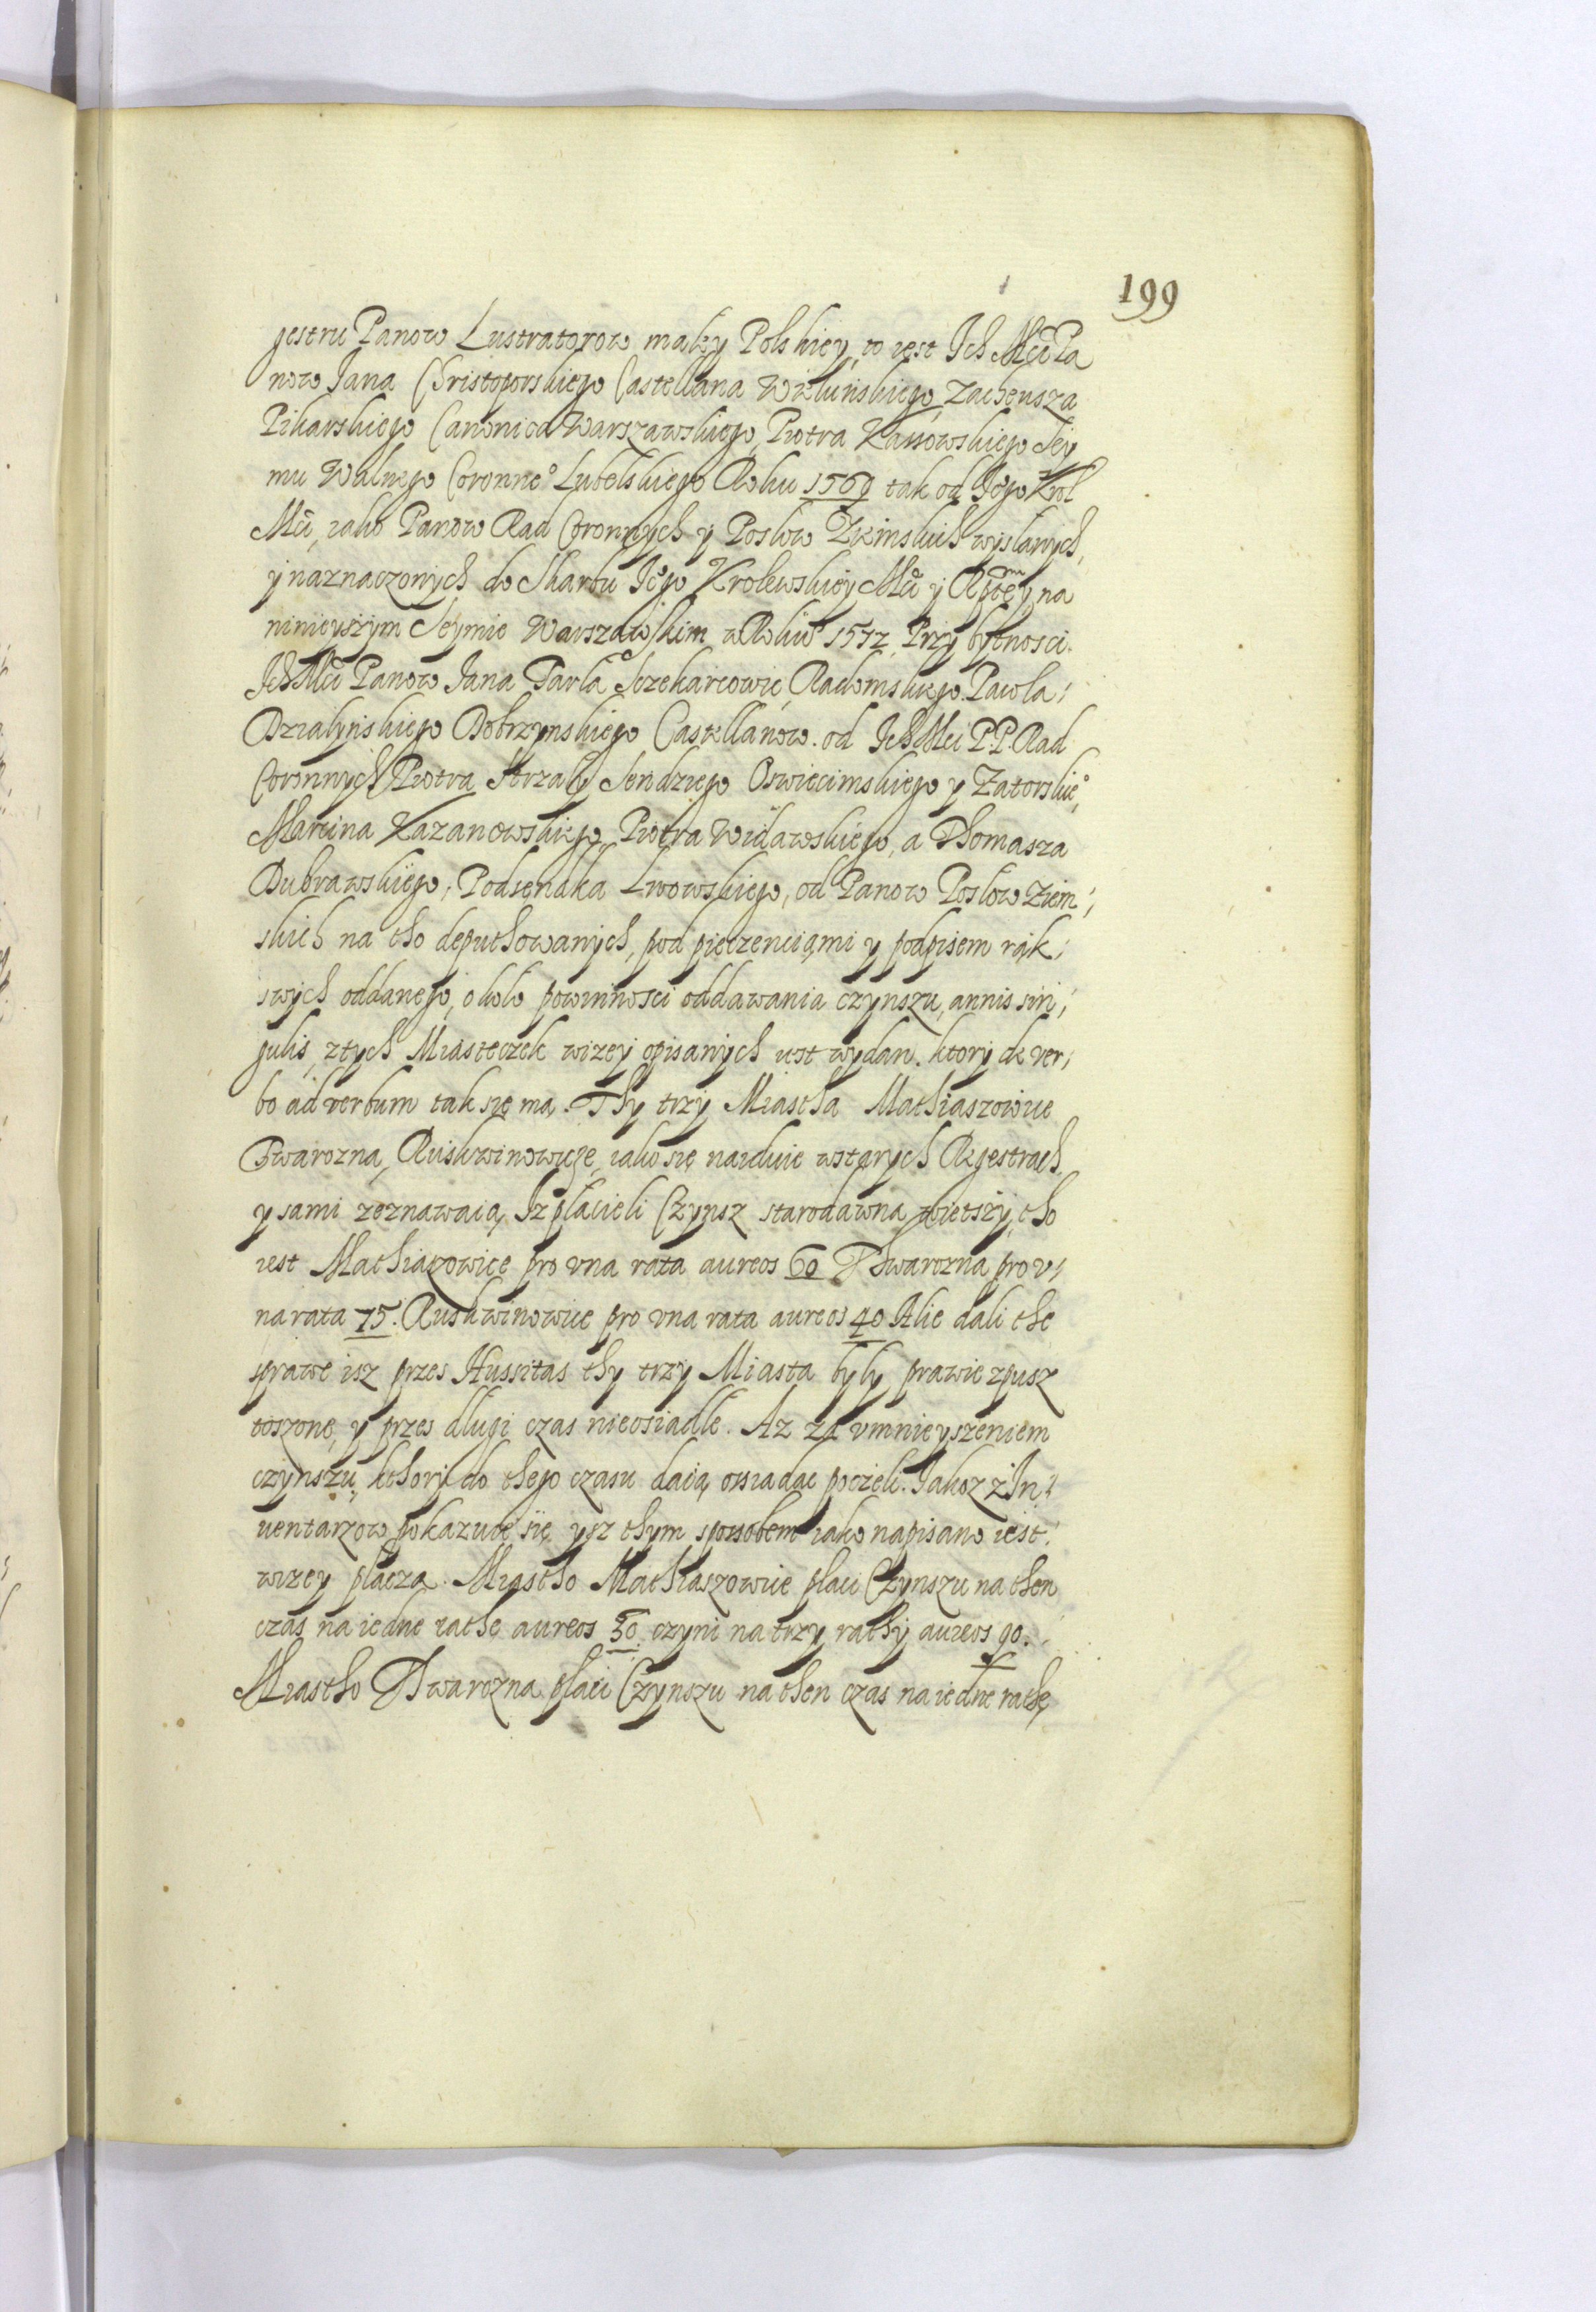 199
gestru Panow Lustratorow małey Polskiey, to iest Ich Mci Pa
now Jana Christoporskiego Castellana Wieluńskiego, Zacheusza
Pikarskiego Canonica Warszawskiego, Piotra Kassowskiego Sey
mu Walnego Coronne° Lubelskiego Roku 1569 tak od Je°go Krol
Mci, iako Panow Rad Coronnych y Posłow Ziemskich wysłanych,
y naznaczonych do Skarbu Je°go Krolewskiey Mci y na
ninieyszym Seymie Warszawskim w Roku 1572. Przy bytnosci.
Ich Mci Panow Jana Tarla Sczekarzowic, Radomskiego. Pawla;
Dzialyńskiego Dobrzynskiego Castellanow. od Ich Mci P.P. Rad
Coronnych Piotra Strzaly Sendziego Oswiecimskiego y Zatorskie°,
Marcina Kazanowskiego, Piotra Widawskiego, a Thomasza
Dubrawskiego, Podsendka Lwowskiego, od Panow Posłow Ziem;
skich na tho deputhowanych, pod pieczenciami y podpisem rąk;
swych oddanego, około powinnosci oddawania czynszu, annis sin;
gulis, z tych Miasteczek wizey opisanych iest wydan. ktory de ver;
bo ad verbum tak się ma. Thy trzy Miastha Mathiaszowice
Twarozna, Ruskwinowicze, iako się naiduie w starych Regestrach,
y sami zeznawaią, Iz placieli Czynsz starodawna wietszy, tho
iest Mathiazowice pro vna rata aureos 60 Thwarozna pro v;
na rata 75. Ruskwinowice pro vna rata aureos 40 Alie dali the
sprawe isz przes Hussitas thy trzy Miasta były prawie zpusz
toszone, y przes długi czas nieosiadłe. Az za vmnieyszeniem
czynszu, kthory do thego czasu daią, ossiadac poczeli. Jakoz z In;
uentarzow pokazuie się ysz thym sposobem iako napisano iest.
wizey płaczą. Miastho Mathiaszowice płaci Czynszu na then
czas na iedne rathe aureos 30 czyni na trzy rathy aureos 90.
Miastho Thwarozna płaci Czynszu na then czas na iedne rathę